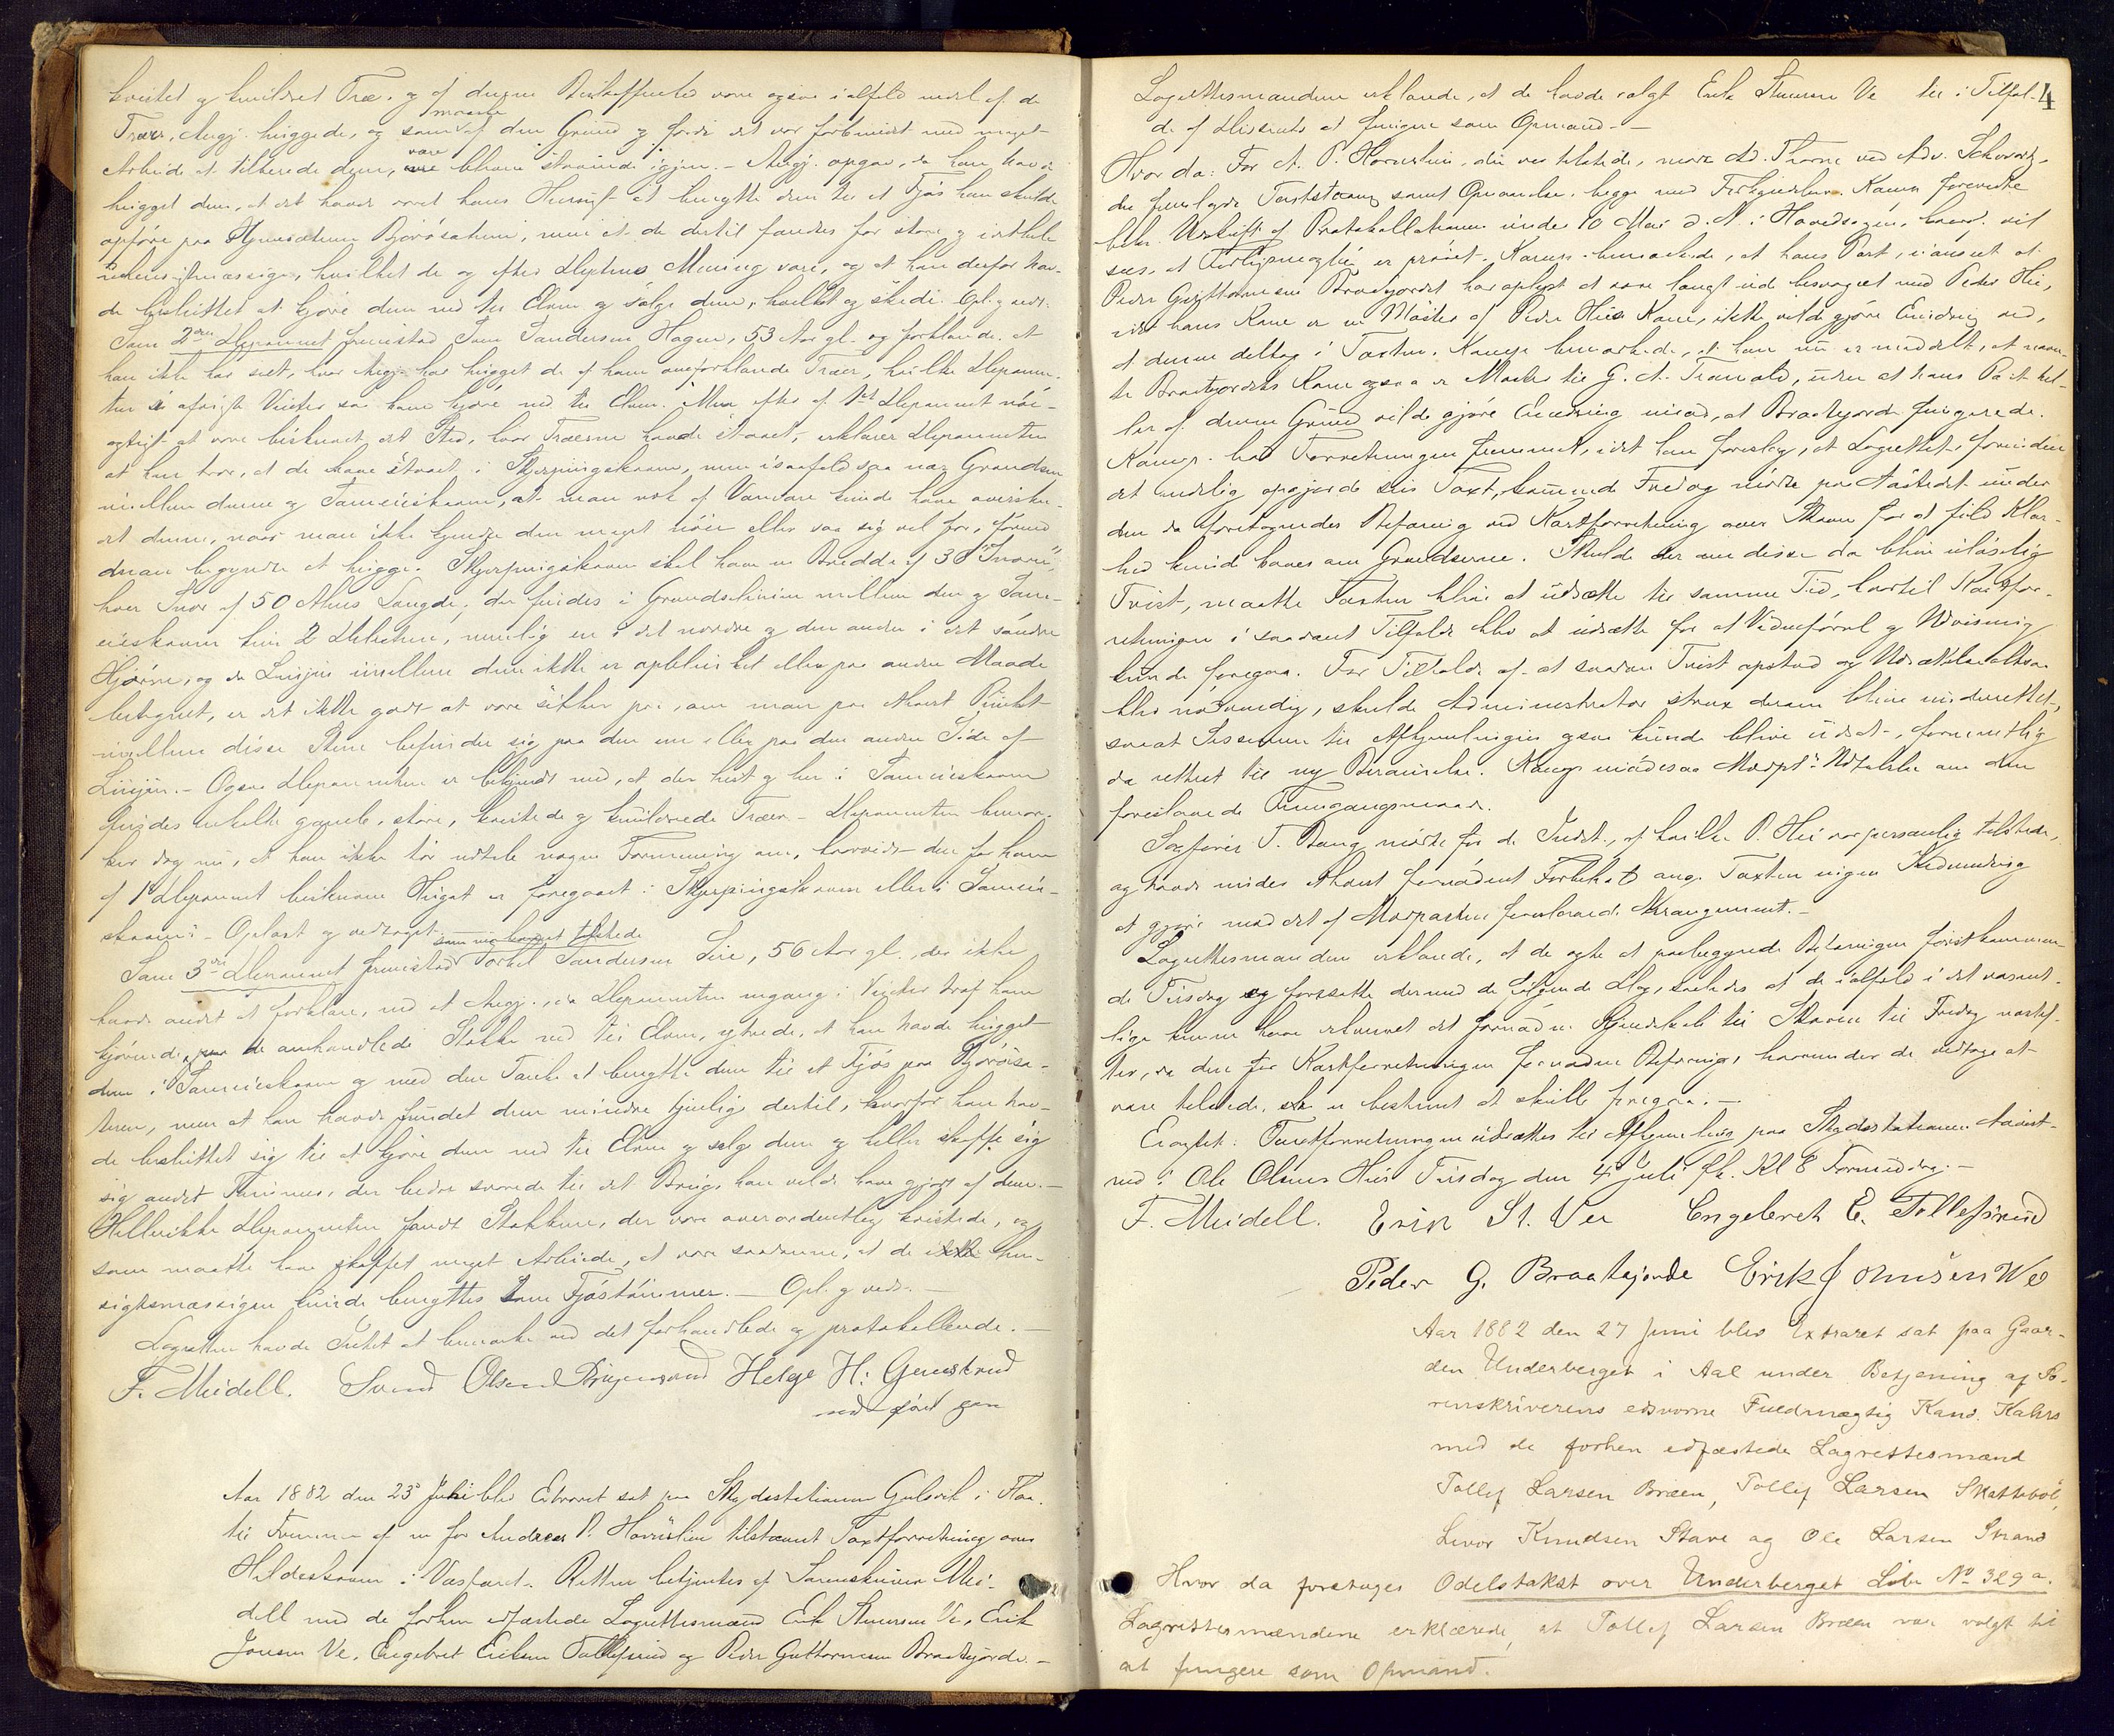 kvistet og knuldret Træ, og af denne Beskaffenhed vare ogsaa ialfald nedel af de
Træer, Angj. huggede, og som maaske af den Grund og fordi det var forbundet med meget
Arbeide at tilberede dem, vare blevne staaende igjen. - Angj. opgav, da han havde
hugget dem, at det havde været hans Hensigt at benytte dem til et Fjøs han skulde
opføre paa Bjørøsæteren, men at de dertil fandtes for store og
uhensigtsmæssige, hvilket de og efter Depts Mening vare, og at han derfor hav-
de besluttet at kjøre dem ned til Elven og sælge dem, hvilket og skede. Opl. og vedt.
Som 2det Deponent fremstod Tandersen Hagen, 53 Aar gl. og forklarede, at
han ikke har seet, hvor Angj. har hugget de af ham omforklarede Træer, hvilke Deponen-
ten afvigte Vinter saa ham kjøre ned til Elven. Men efter af 1ste Deponent nøi-
agtigt at være beskrevet det Sted, hvor Træerne havde staaet, erklærer Deponenten
at han tror, at de have staaet i Skjerpingskoven, men isaafald saa nær Grændsen
mellem denne og Sameieskoven, at man nok af Vanvare kunde have overskre-
det denne, naar man ikke kjendte den meget nøie eller saa sig vel for, førend
man begyndte at hugge. Skjerpingskoven skal have en Bredde af 30 "Snorer",
hver Snor af 50 Alens Længde; der findes i Grændselinien mellem den og Sam-
eieskoven kun 2 Delestene, nemlig en i det nordre og den anden i det søndre
Hjørne, og da Linjen imellem dem ikke er opblinket eller paa anden Maade
betegnet, er det ikke godt at være sikker paa, om man paa ethvert Punkt
mellem disse Stene befinder sig paa den ene eller paa den anden Side af
Linjen. - Ogsaa Deponenten er bekjendt med, at der hist og her i Sameieskoven
findes enkelte gamle, store, kvistede og knuldrede Træer - Deponenten bemær-
ker dog nu, at han ikke tør udtale nogen Formening om, hvorvidt den for ham
af 1 Deponent beskrevne Hugst er foregaaet i Skjerpingskoven eller i Sameie-
skoven. - Oplæst og vedtaget.
som var kommet tilstede
Som 3die Deponent fremstod Torkel Sandersen Lire, 56 Aar gl. der ikke
havde andet at forklare, end at Angj., da Deponenten engang i Vinter traf ham
kjørende de omhandlede Stokke ned til Elven, ytrede, at han havde hugget
dem i Sameieskoven og med den Tanke at benytte dem til et Fjøs paa Bjørøsæ-
teren, men at han havde fundet dem mindre tjenlige dertil, hvorfor han hav-
de besluttet sig til at kjøre dem ned til Elven og sælge dem og heller skaffe sig
sig andet Tømmer, der bedre svarede til det Brug, han vilde have gjort af dem. -
Hellerikke Deponenten fandt Stokkene, der vare overordentlig kvistede, og
som maatte have skaffet meget Arbeide, at være saadanne, at de ikke hen-
sigtsmæssigen kunde benyttes som Fjøstømmer. - Opl. og vedt. -
Lagretten havde Intet at bemærke ved det forhandlede og protokollerede. -
F. Meidell. Svend Olsen Helge H: Gjeruskrud
med ført pen
Aar 1882 den 23de Juni blev Extraret sat paa Skydsstationen Gulsvik i Flaa,
til Fremme af en for Andreas P. Hornslien tilstævnt Taxtforretning over
Hildeskoven i Vasfaret. Retten betjentes af Sorenskriver Mei-
dell med de forhen edfæstede Lagrettesmænd Erik Steensen Ve, Erik
Jonsen Ve, Engebret Eriksen Tollefsrud og Peder Guttormsen Braatejorde. -
4
Lagrettesmændene erklærede, at de havde valgt Erik Steensen Ve til i Tilfæl-
de af Dissents at fungere som Opmand. -
Hvor da: For A. P. Hornslien, der var tilstede, mødte Ad. Thorne ved Adv. Schwartz,
der fremlagde Taxtstævning samt Opnævnelse, begge med Forkyndelser. Kamp foreviste
bekr. Udskrift af Protokollationen under 10 Mai d. A. i Hovedsagen, hvoraf vil
sees, at Forligsmægling er prøvet. - bemærkede, at hans Part, uanseet at
Peder Guttormsen Braatejordet har oplyst at være langt ude besvogret med Peder Hie,
idet hans Kone er en Søster af Peder Hies Kone, ikke vilde gjøre Indsigelse mod,
at denne deltog i Taxten. Kamp bemærkede, at han nu er meddelt, at næv-
te Braatejordets Kone ogsaa er Moster til G. A. Tranvald, uden at hans Part hel-
ler af denne Grund vilde gjøre Indvending imod, at Braatejorde fungerede.
Kamp. bad Forretningen fremmet, idet han foreslog, at Lagrettet, forinden
det endelig opgjorde sin Taxt, Fredag mødte paa Aastedet under
den da foretagendes Befaring ved Kartforretning over Skoven for at fuld Klar-
hed kunde haves om Grændserne. Skulde der om disse da blive uløselig
Tvist, maatte Taxten blive at udsætte til samme Tid, hvortil Kartfor-
retningen i saadant Tilfælde blev at udsætte for at Vidneførsel og Udvisning
kunde foregaa. For Tilfælde af at saadan Tvist opstod og Udsættelse altsaa
blev nødvendig, skulde Administrator strax derom blive underrettet,
saaat Sessionen til Afhjemlingen ogsaa kunde blive udsat, fornemmelig
da rettest til ny Berammelse. Kamp imødesaa Modpts Udtalelse om den
foreslaaede Fremgangsmaade.
Sagfører T. Bang mødte for de Indst., af hvilke P. Hie var personlig tilstede,
og havde under ethvert fornødent Forbehold ang. Taxten ingen Indvending
at gjøre mod det af Modparten foreslaaede Arrangement. -
Lagrettesmændene erklærede, at de agte at paabegynde Befaringen førstkommen-
de Tirsdag og fortsætte dermed de følgende Dag, saaledes at de ialfald i det væsent-
lige kunne have erhvervet det fornødne Kjendskab til Skoven til Fredag næstef-
ter, da den for Kartforretningen fornødne Befaring, hvorunder de vedtoge at
være tilstede, er bestemt at skulle foregaa. -
Eragtet: Taxtforretningen udsættes til Afhjemling paa Skydsstationen
ved Ole Olsens Hus Tirsdag den 4de Juli fk. Kl 8 Formiddag. -
F. Meidell. Erik St. Vee Engebret E. Tollefsrud
Peder G. Braatejorde Erik Jonnsen We
Aar 1882 den 27 Juni blev Extraret sat paa Gaar-
den Underberget i Aal under Betjening af So-
renskriverens edsvorne Fuldmægtig Kand. Kahrs
med de forhen edfæstede Lagrettesmænd
Tollef Larsen Bræen, Tollef Larsen Skattebøl,
Levor Knudsen Stave og Ole Larsen Strand
Hvor da foretoges Odelstakst over Underberget Løbe No 329a.
Lagrettesmændene erklærede, at Tollef Larsen Bræen var valgt til
at fungere som Opmand.